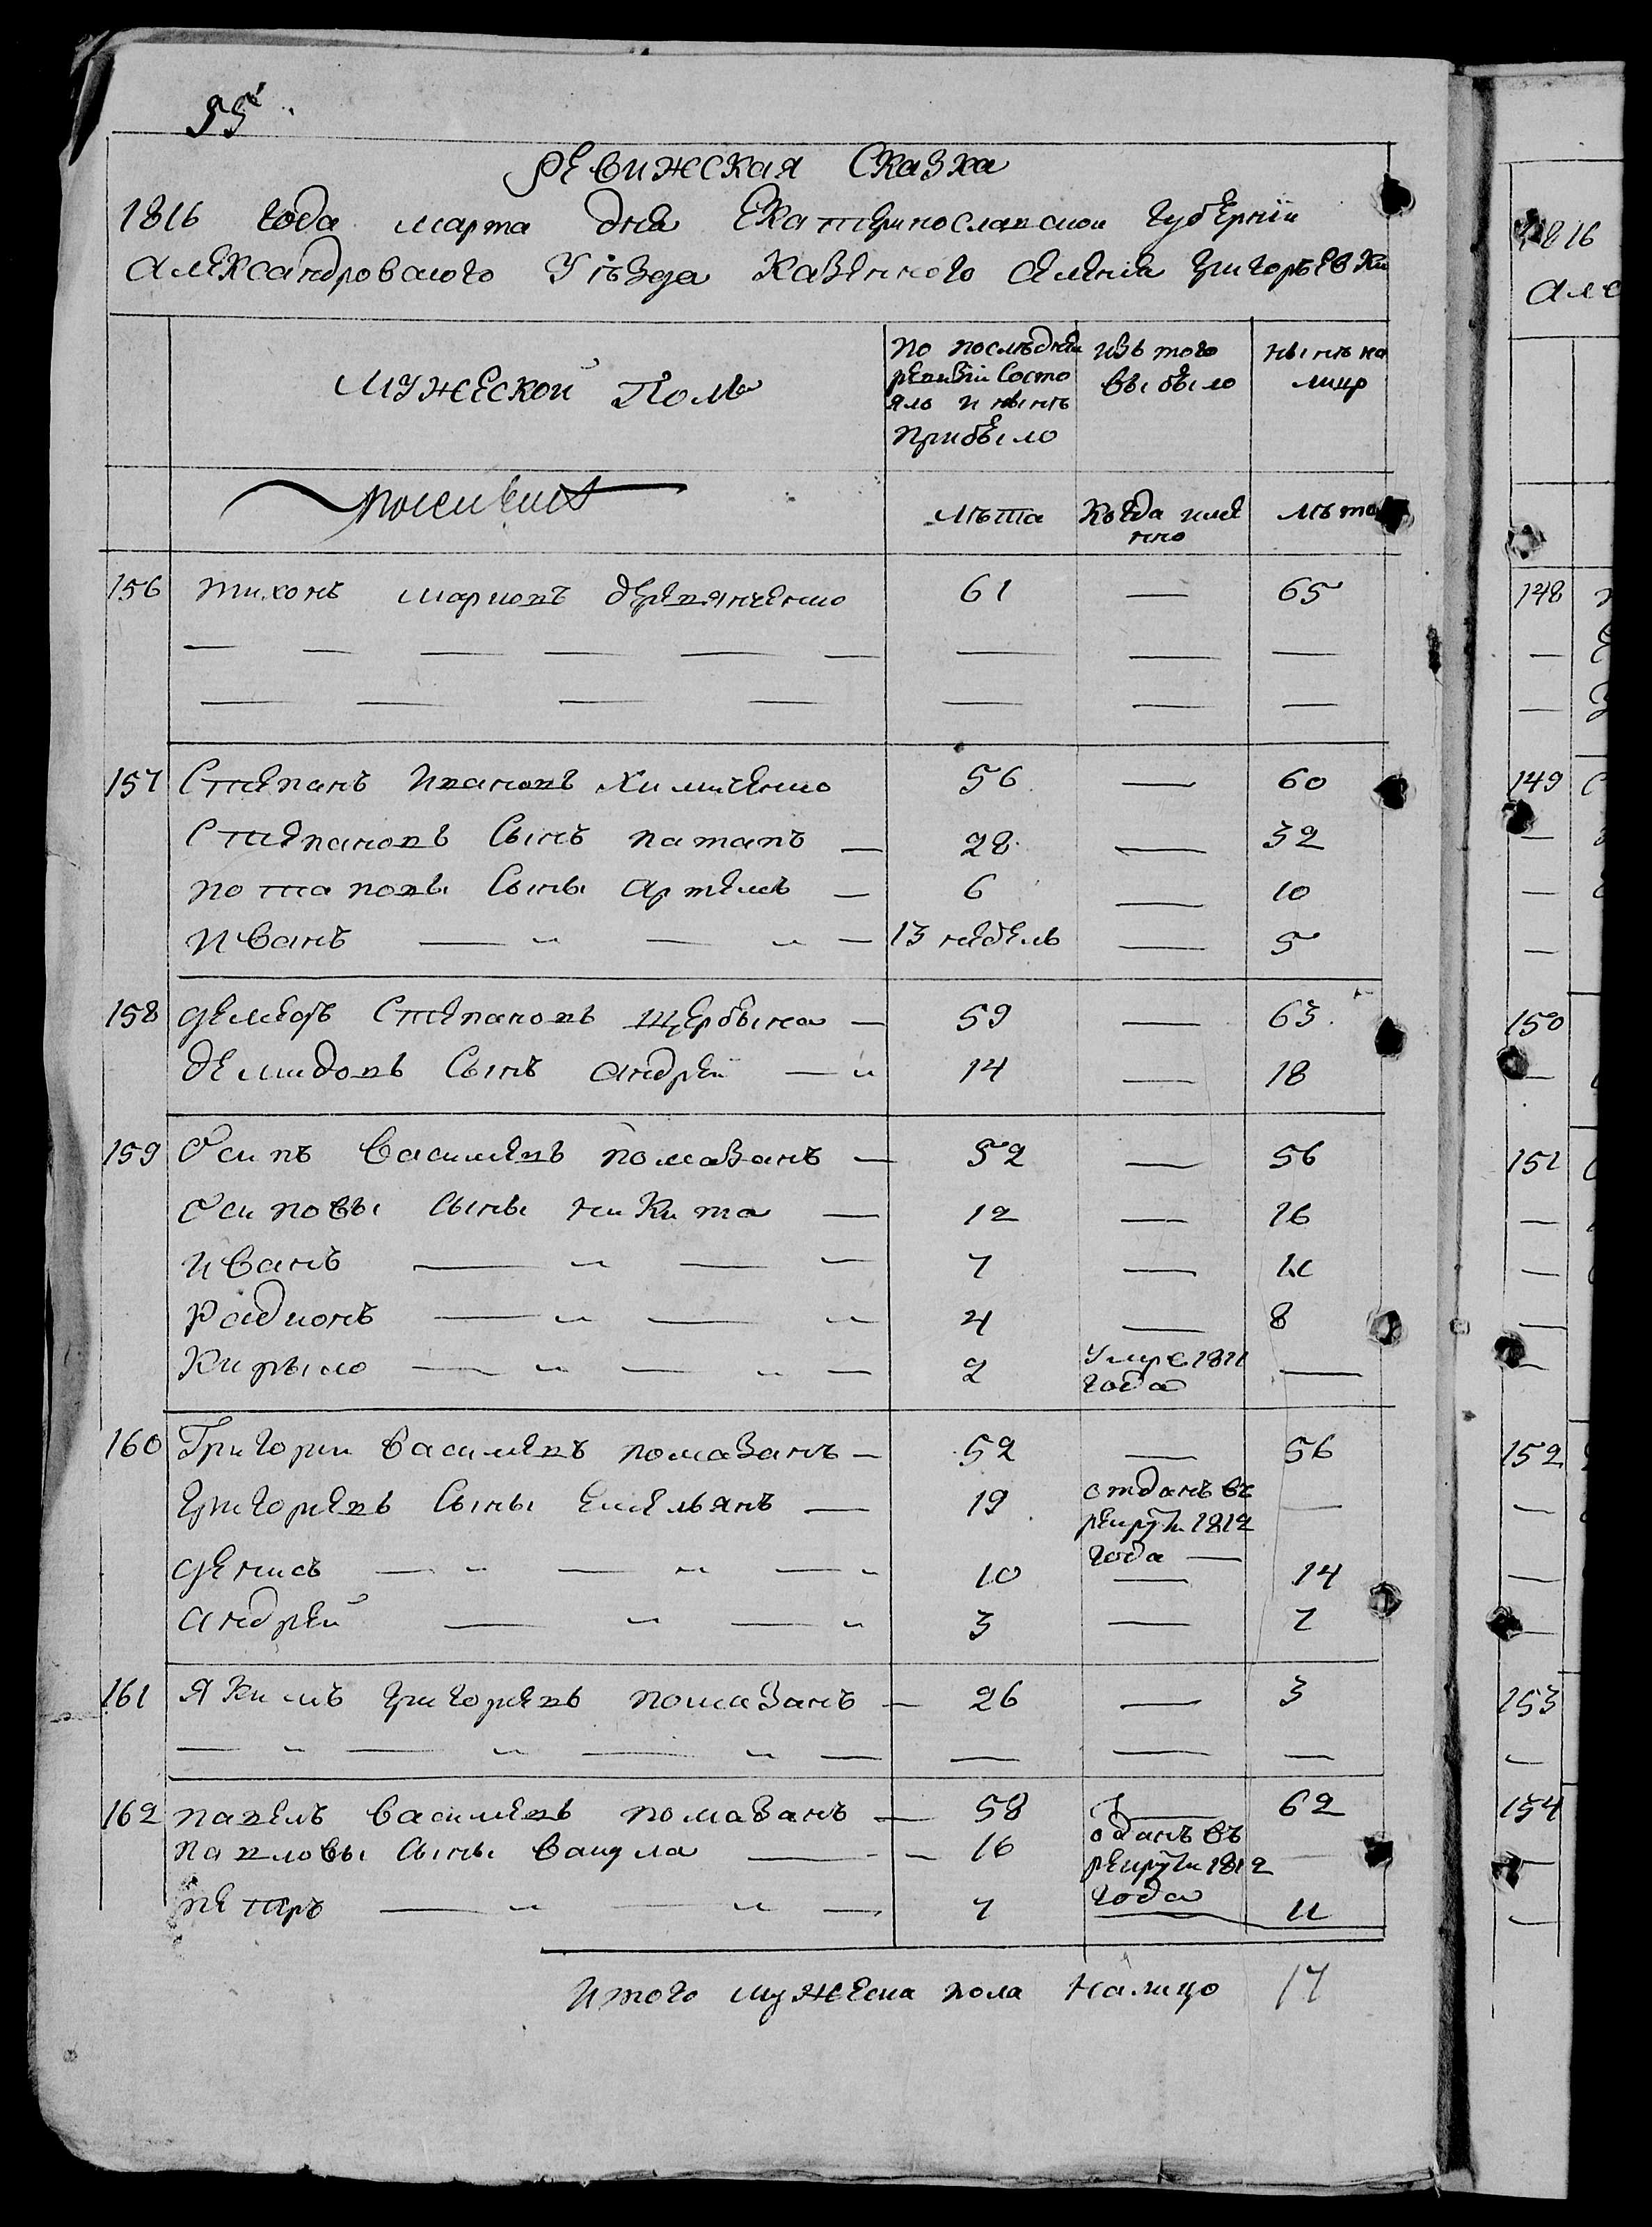 55
Ревижская Сказка
1816 года марта дня Екатеринославской губернии
Александровского Уѣзда Казенного селения Григорьевки
Мужеской Полъ
по последней ревизіи состоялъ и нынѣ прибыло
изъ того выбыло
нынѣ на лицо
лѣта
Когда именно
лѣта
156 Тихонъ Марковъ Деревянченко 61 — 65
157 Степанъ Ивановъ Химиченко 56 — 60
Степановъ сынъ Патапъ — 28 — 32
Потаповы сыны Артемъ — 6 — 10
Иванъ — 13 недель — 5
158 Демидъ Степановъ Щербына — 59 — 63
Демидовъ сынъ Андрей — 14 — 18
159 Осипъ Василиевъ Помазанъ — 52 — 56
Осиповы сыны Никита — 12 — 16
Иванъ — 7 — 11
Радионъ — 4 — 8
Кирыло — 2 умре 1811 года —
160 Григории Василиевъ Помазанъ — 52 — 56
Григориевъ сыны Емельянъ — 19 отданъ въ рекруты 1812 года —
Денисъ — 10 — 14
Андрей — 3 — 7
161 Якимъ Григориевъ Помазанъ — 26 — 3
162 Павелъ Василиевъ Помазанъ — 58 — 62
Павловы сыны Вакула — 16 оданъ въ рекруты 1812 года
Петръ — 7 11
Итого мужеска пола налицо 17
1816
Але
148
149
150
151
152
153
154